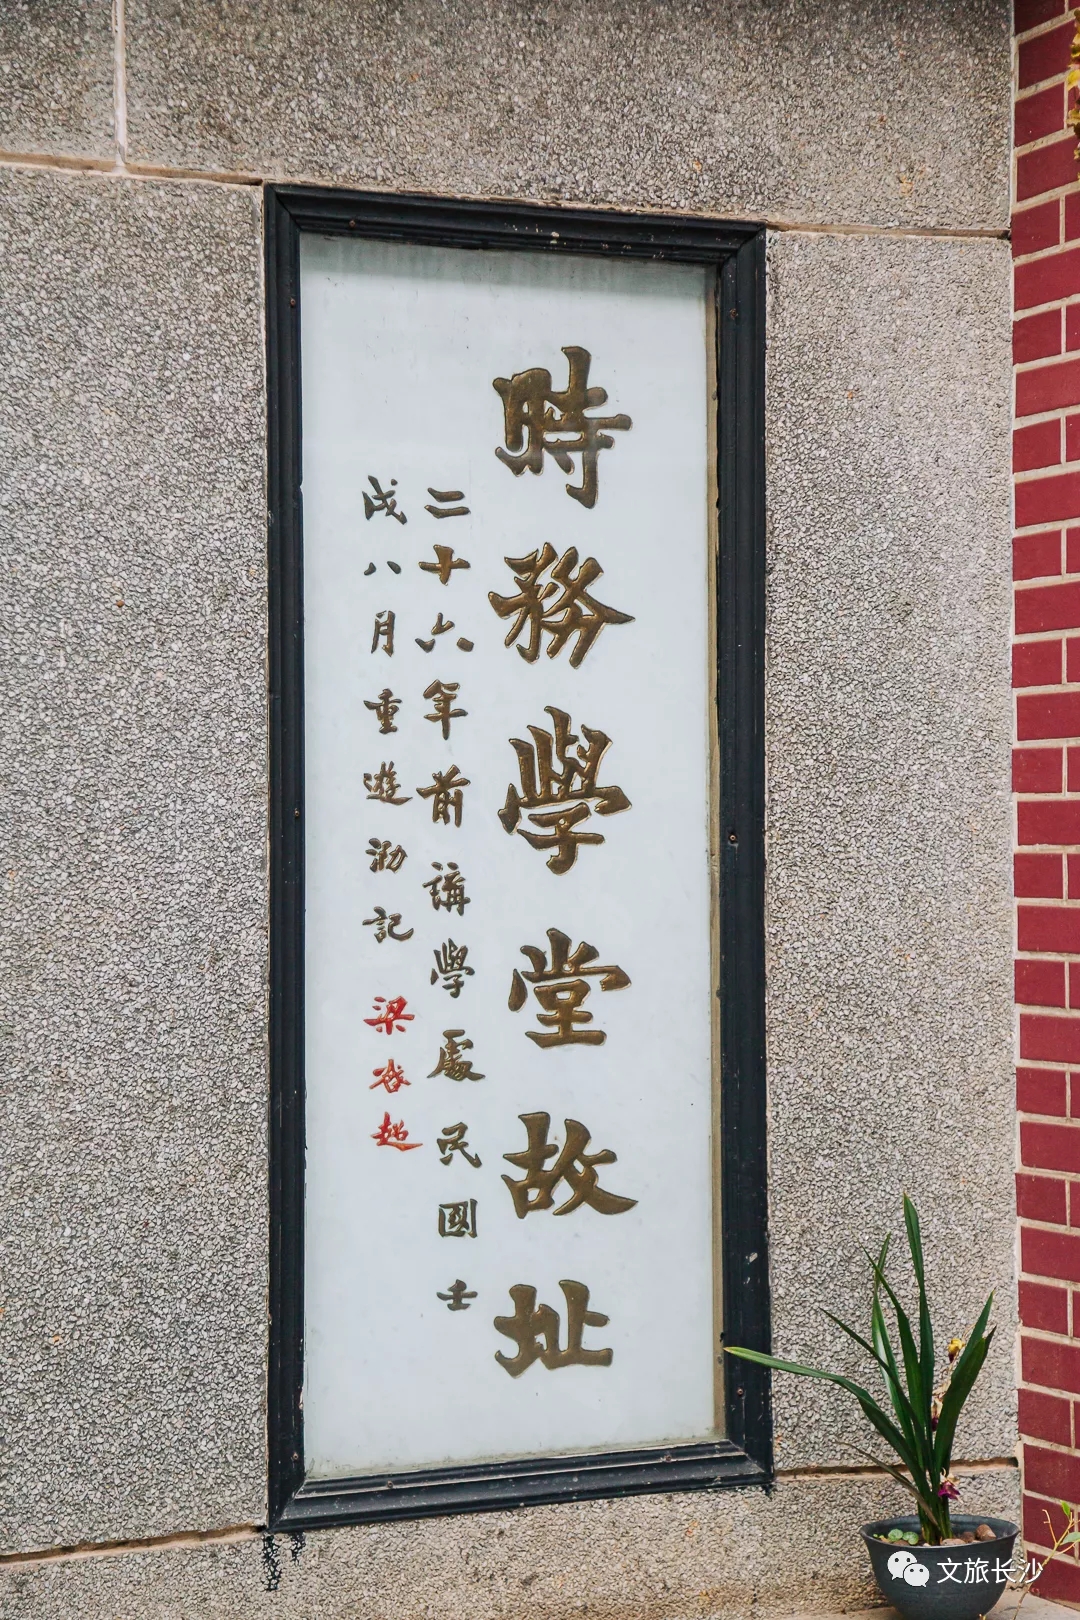 時務學堂故址
二十六年前講學處民國壬
戌八月重遊泐記 梁啓超
文旅长沙